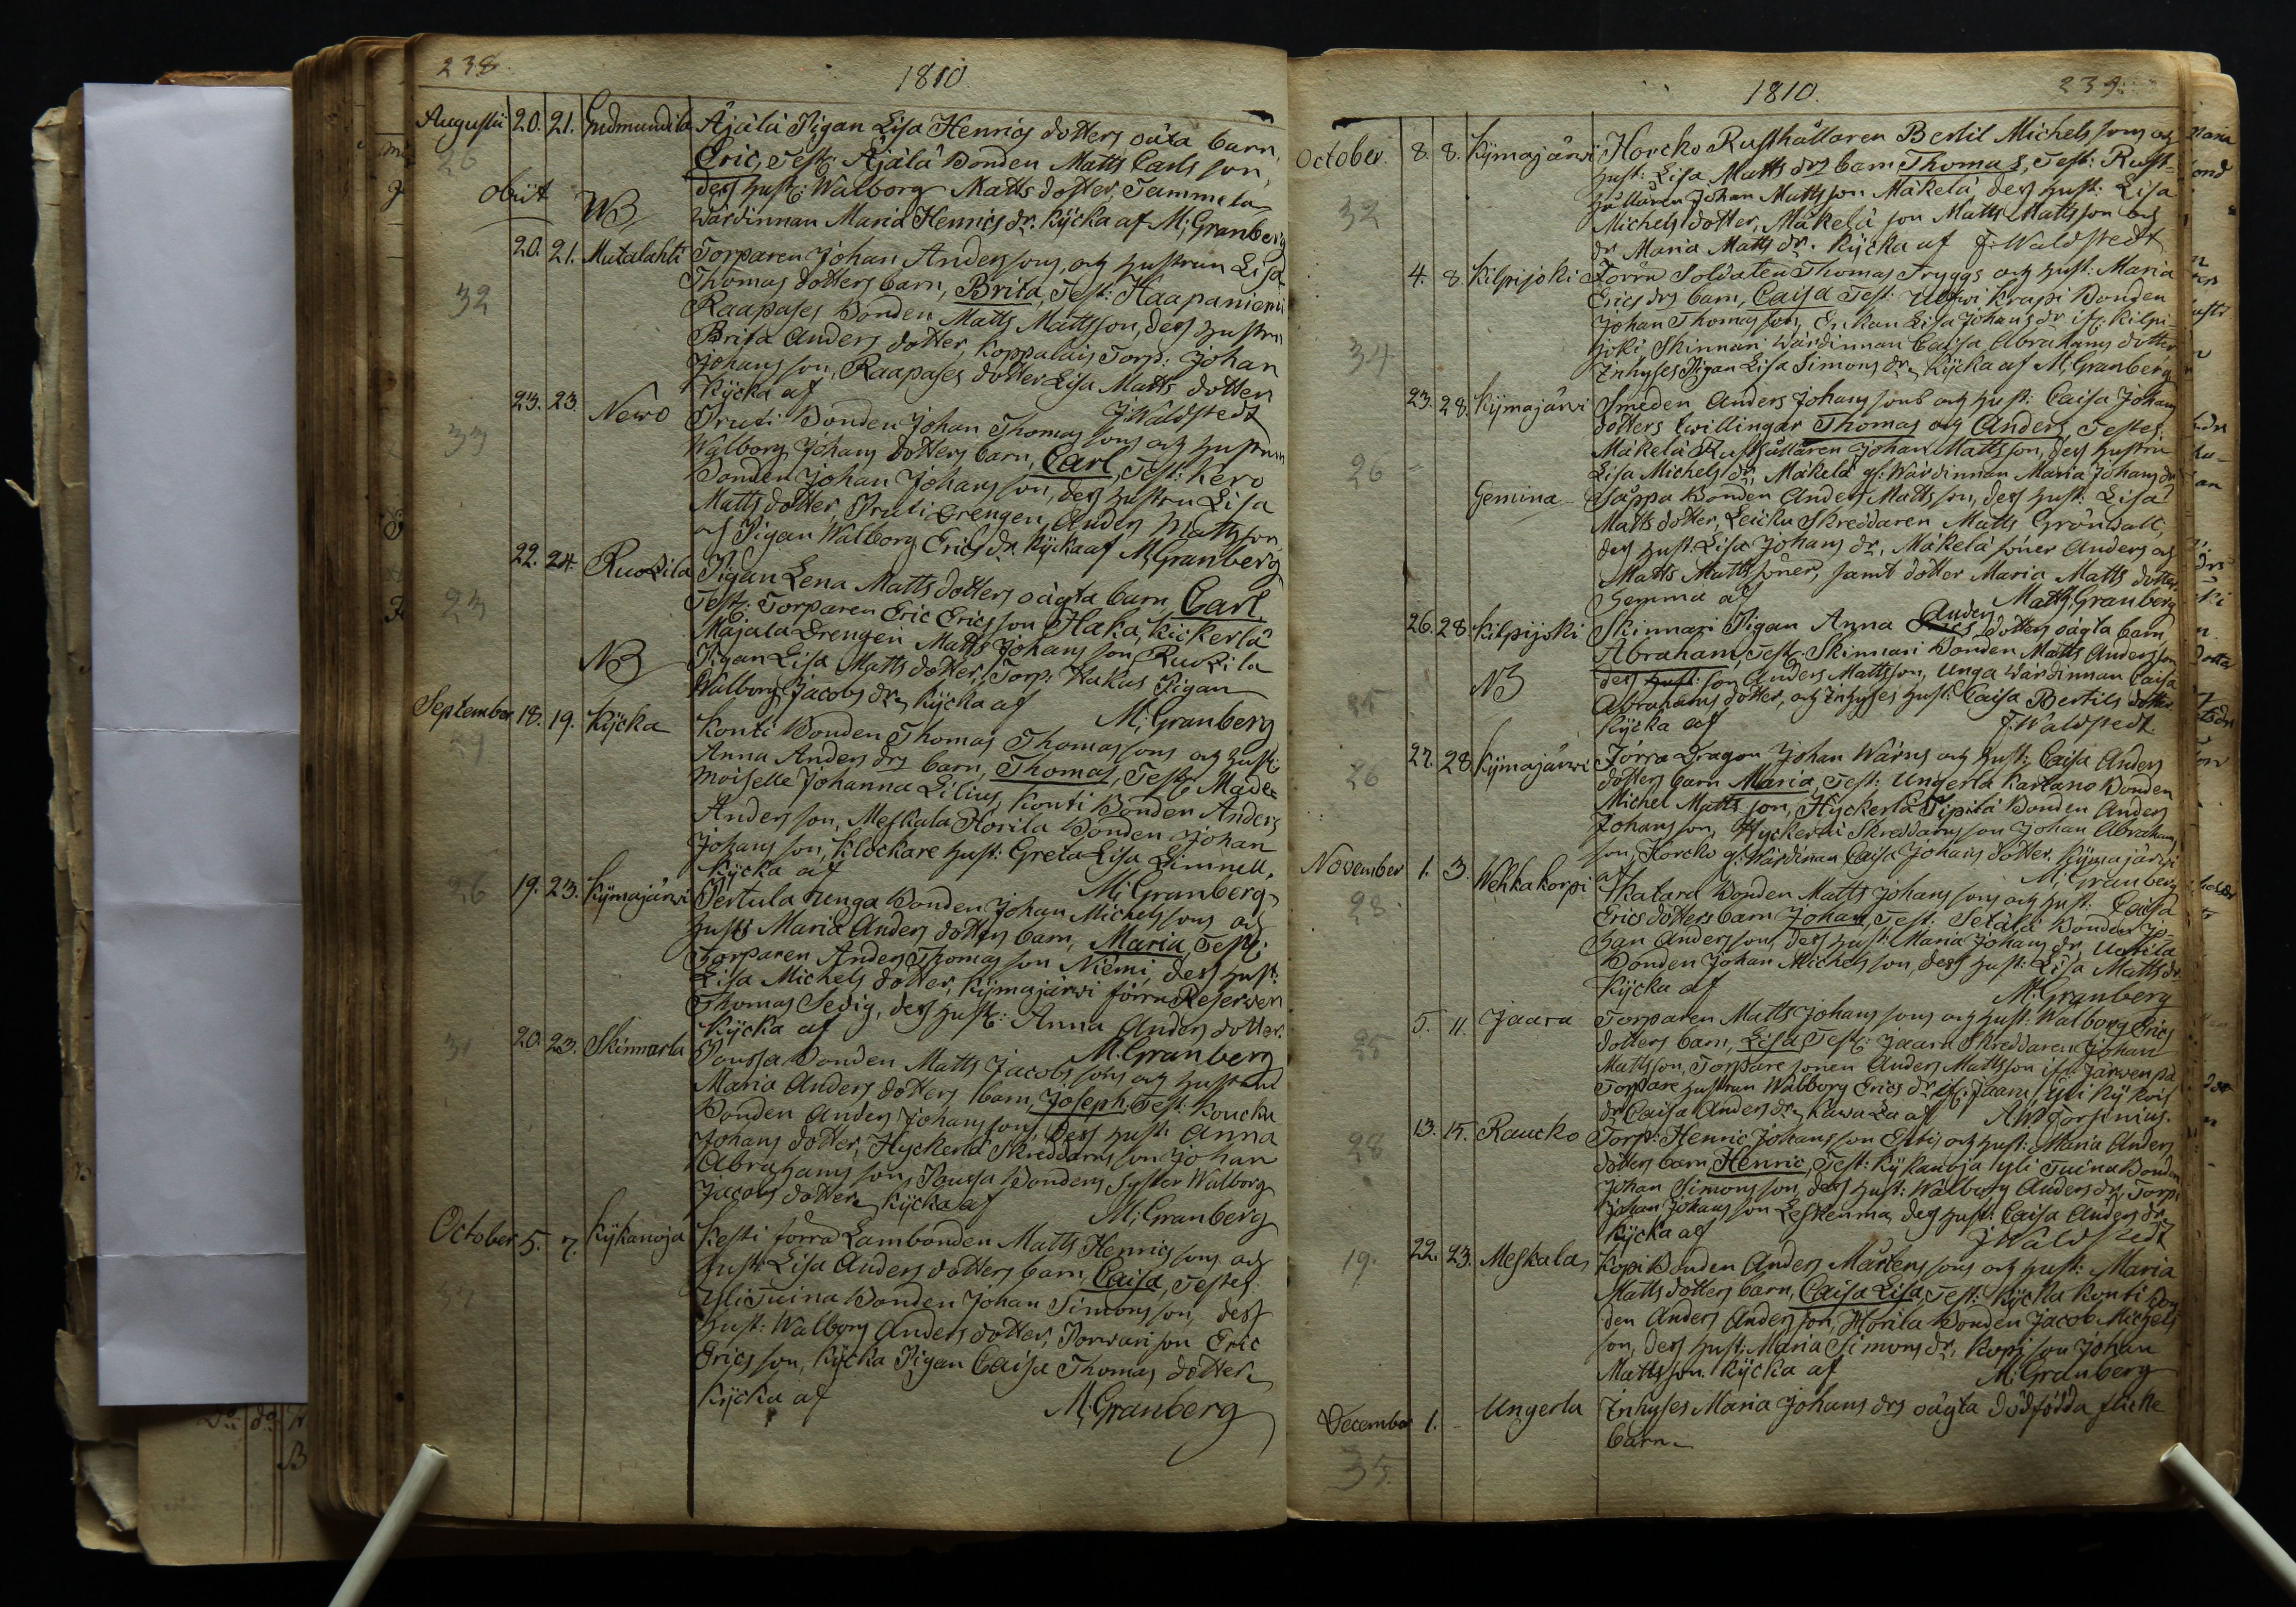 238.
1810.
Augusti 20. 21. Gudmundila Äjälä Pigan Lisa Henrics dotters oäta barn,
26 Eric, Test: Äjälä Bonden Matts Carls son,
obiit NB dess hust: Walborg Matts dotter, Tammela
wärdinnan Maria Henrics dr. Kycka af M: Granberg
20. 21. Mutalahti Torparen Johan Anderssons, och hustrun Lisa
32 Thomas dotters barn, Brita, Test: Haapaniemi
Raapases Bonden Matts Mattsson, dess hustru
Brita Anders dotter, Koppalais Torp: Johan
Johans son, Raapases dotter Lisa Matts dotter
Kycka af J: Waldstedt
23. 23. Newo Pruti Bonden Johan Thomas sons och hustrun
33 Walborg Johans dotters barn, Carl, Test: Kero
Bonden Johan Johans son, dess hustru Lisa
Matts dotter, Pruti Drengen Anders Mattsson,
och Pigan Walborg Erics dr. Kycka af M: Granberg
22. 24. Ruokila Pigan Lena Matts dotters oägta barn, Carl,
23 Test: Torparen Eric Ericsson Haka, Kickerlä
Majala Drengen Matts Johans son, Ruokila
NB Pigan Lisa Matts dotter, Torp: Hakas Pigan
Walborg Jacobs dr, Kycka af M: Granberg
September 18. 19. Kycka Konti Bonden Thomas Thomassons och hust:
29 Anna Anders drs barn, Thomas, Test: Made-
moiselle Johanna Lilius, Konti Bonden Anders
Andersson, Meskala Horila Bonden Johan
Johans son, Klockare hust: Greta Lisa Limnell,
Kycka af M: Granberg
26 19. 23. Kymajärwi Pertula unga Bonden Johan Michelssons och
hust: Maria Anders dotters barn, Maria, Test:
Torparen Anders Thomas son Niemi, dess hust:
Lisa Michels dotter, Kymajärwi förra Reserven
Thomas Sedig, dess hust: Anna Anders dotter.
Kycka af M: Granberg
31 20. 23. Skinnarla Poussa Bonden Matts Jacobs sons och hustrun
Maria Anders dotters barn, Joseph, Test: Koucka
Bonden Anders Johans son, dess hust: Anna
Johans dotter, Hyckerlä Skreddarns son Johan
Abrahams son, Poussa Bondens Syster Walborg
Jacobs dotter, Kycka af M: Granberg
October 5. 7. Kykanoja Kesti förra Lambonden Matts Henrics sons och
hust: Lisa Anders dotters barn, Caisa, Testes:
Yli Tuina Bonden Johan Simons son, dess
hust: Walborg Anders dotter, Porwari son Eric
Erics son, Kycka Pigan Caisa Thomas dotter
Kycka af M: Granberg
1810. 239.
October. 8. 8. Kymajärwi Horcko Rusthållaren Bertil Michels sons och
hust: Lisa Matts drs barn Thomas, Test: Rust-
32 hållaren Johan Mattsson Mäkelä, dess hust: Lisa
Michels dotter, Mäkelä son Matts Mattsson och
dr Maria Matts dr. Kycka af J: Waldstedt
4. 8 Kilpijoki Förra Soldaten Thomas Tryggs och hust: Maria
Erics drs barn, Caisa Test: Krapi Bonden
34 Johan Thomas son, Enkan Lisa Johans dr if: Kilpi-
joki, Skinnari wärdinnan Caisa Abrahams dotter
Inhyses Pigan Lisa Simons dr, Kycka af M: Granberg
23. 28. Kymajärwi Smeden Anders Johans sons och hust: Caisa Johans
dotters twillingar Thomas och Anders, Testes:
26 Mäkelä Rusthållaren Johan Mattsson, dess hustru
Lisa Michels dr, Mäkelä gl: Wärdinnan Maria Johans dr
Gemina Säppä Bonden Anders Matts son, dess hust: Lisa
Matts dotter, Leicku Skreddaren Matts Grönwall,
dess hust: Lisa Johans dr, Mäkelä söner Anders och
Matts Mattssöner, samt dotter Maria Matts dotter
Hemma af Matts Granberg
26. 28. Kilpijoki Skinnari Pigan Anna Anders dotters oägta barn,
Abraham, Test: Skinnari Bonden Matts Andersson
35 NB dess son Anders Mattsson, Unga Wärdinnan Caisa
Abrahams dotter, och Inhyses hust: Caisa Bertils dotter
Kycka af J: Waldstedt.
27. 28. Kymajärwi Förra Dragon Johan Wärns och hust: Caisa Anders
26 dotters barn Maria, Test: Ungerla Kartano Bonden
Michel Matts son, Hyckerlä Pipilä Bonden Anders
Johans son, Hyckerlä Skreddarns son Johan Abrahams
son, Horcko gl: Wärdinnan Caisa Johans dotter. Kymajärwi
af M: Granberg
November 1. 3. Wehkakorpi Skatara Bonden Matts Johans sons och hust: Caisa
28. Erics dotters barn Johan, Test: Setälä Bonden Jo-
han Andersson, dess hust: Maria Johans dr, Uotila
Bonden Johan Michels son, dess hust: Lisa Matts dr.
Kycka af M: Granberg
5. 11. Jaara Torparen Matts Johans sons och hust: Walborg Erics
25 dotters barn, Lisa, Test: Jaara Skreddaren Johan
Mattsson, Torpare sonen Anders Mattsson if: Järwenpä
Torpare hustrun Walborg Erics dr if: Jaara, Yli Kykois
dr Caisa Anders dr, af
13. 15. Raucko Torp: Henric Johans son och hust: Maria Anders
28 dotters barn Henric, Test: Kykanoja Yli Tuina Bonden
Johan Simons son, dess hust: Walborg Anders dr, Torp:
Johan Johans son Leskenma, dess hust: Caisa Anders dr.
Kycka af J Waldstedt
19. 22. 23. Meskala Kopi Bonden Anders Mårtenssons och hust: Maria
Matts dotters barn, Caisa Lisa, Test: Kycka Konti Bon
den Anders Andersson, Horila Bonden Jacob Michels
son, dess hust: Maria Simons dr, Kopi son Johan
Mattsson. Kycka af M: Granberg
December 1. - Ungerla Inhyses Maria Johans drs oägta dödfödda flicke
35. barn.